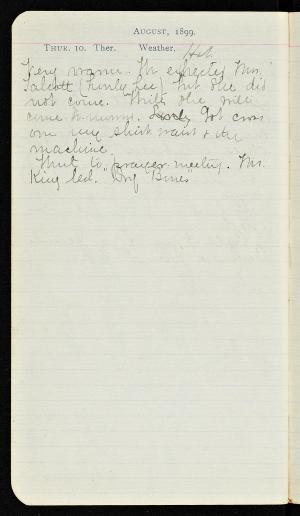 August, 1899.
Thur. 10. Ther. Weather. Hot
Very warm. We expected Mrs.
Talcott (Emily Lee) but she did
not come. Think she will
come to-morrow. Got cross
over my shirt waist & the
machine.
Went to prayer-meeting. Mr.
King led. "Dry Bones"